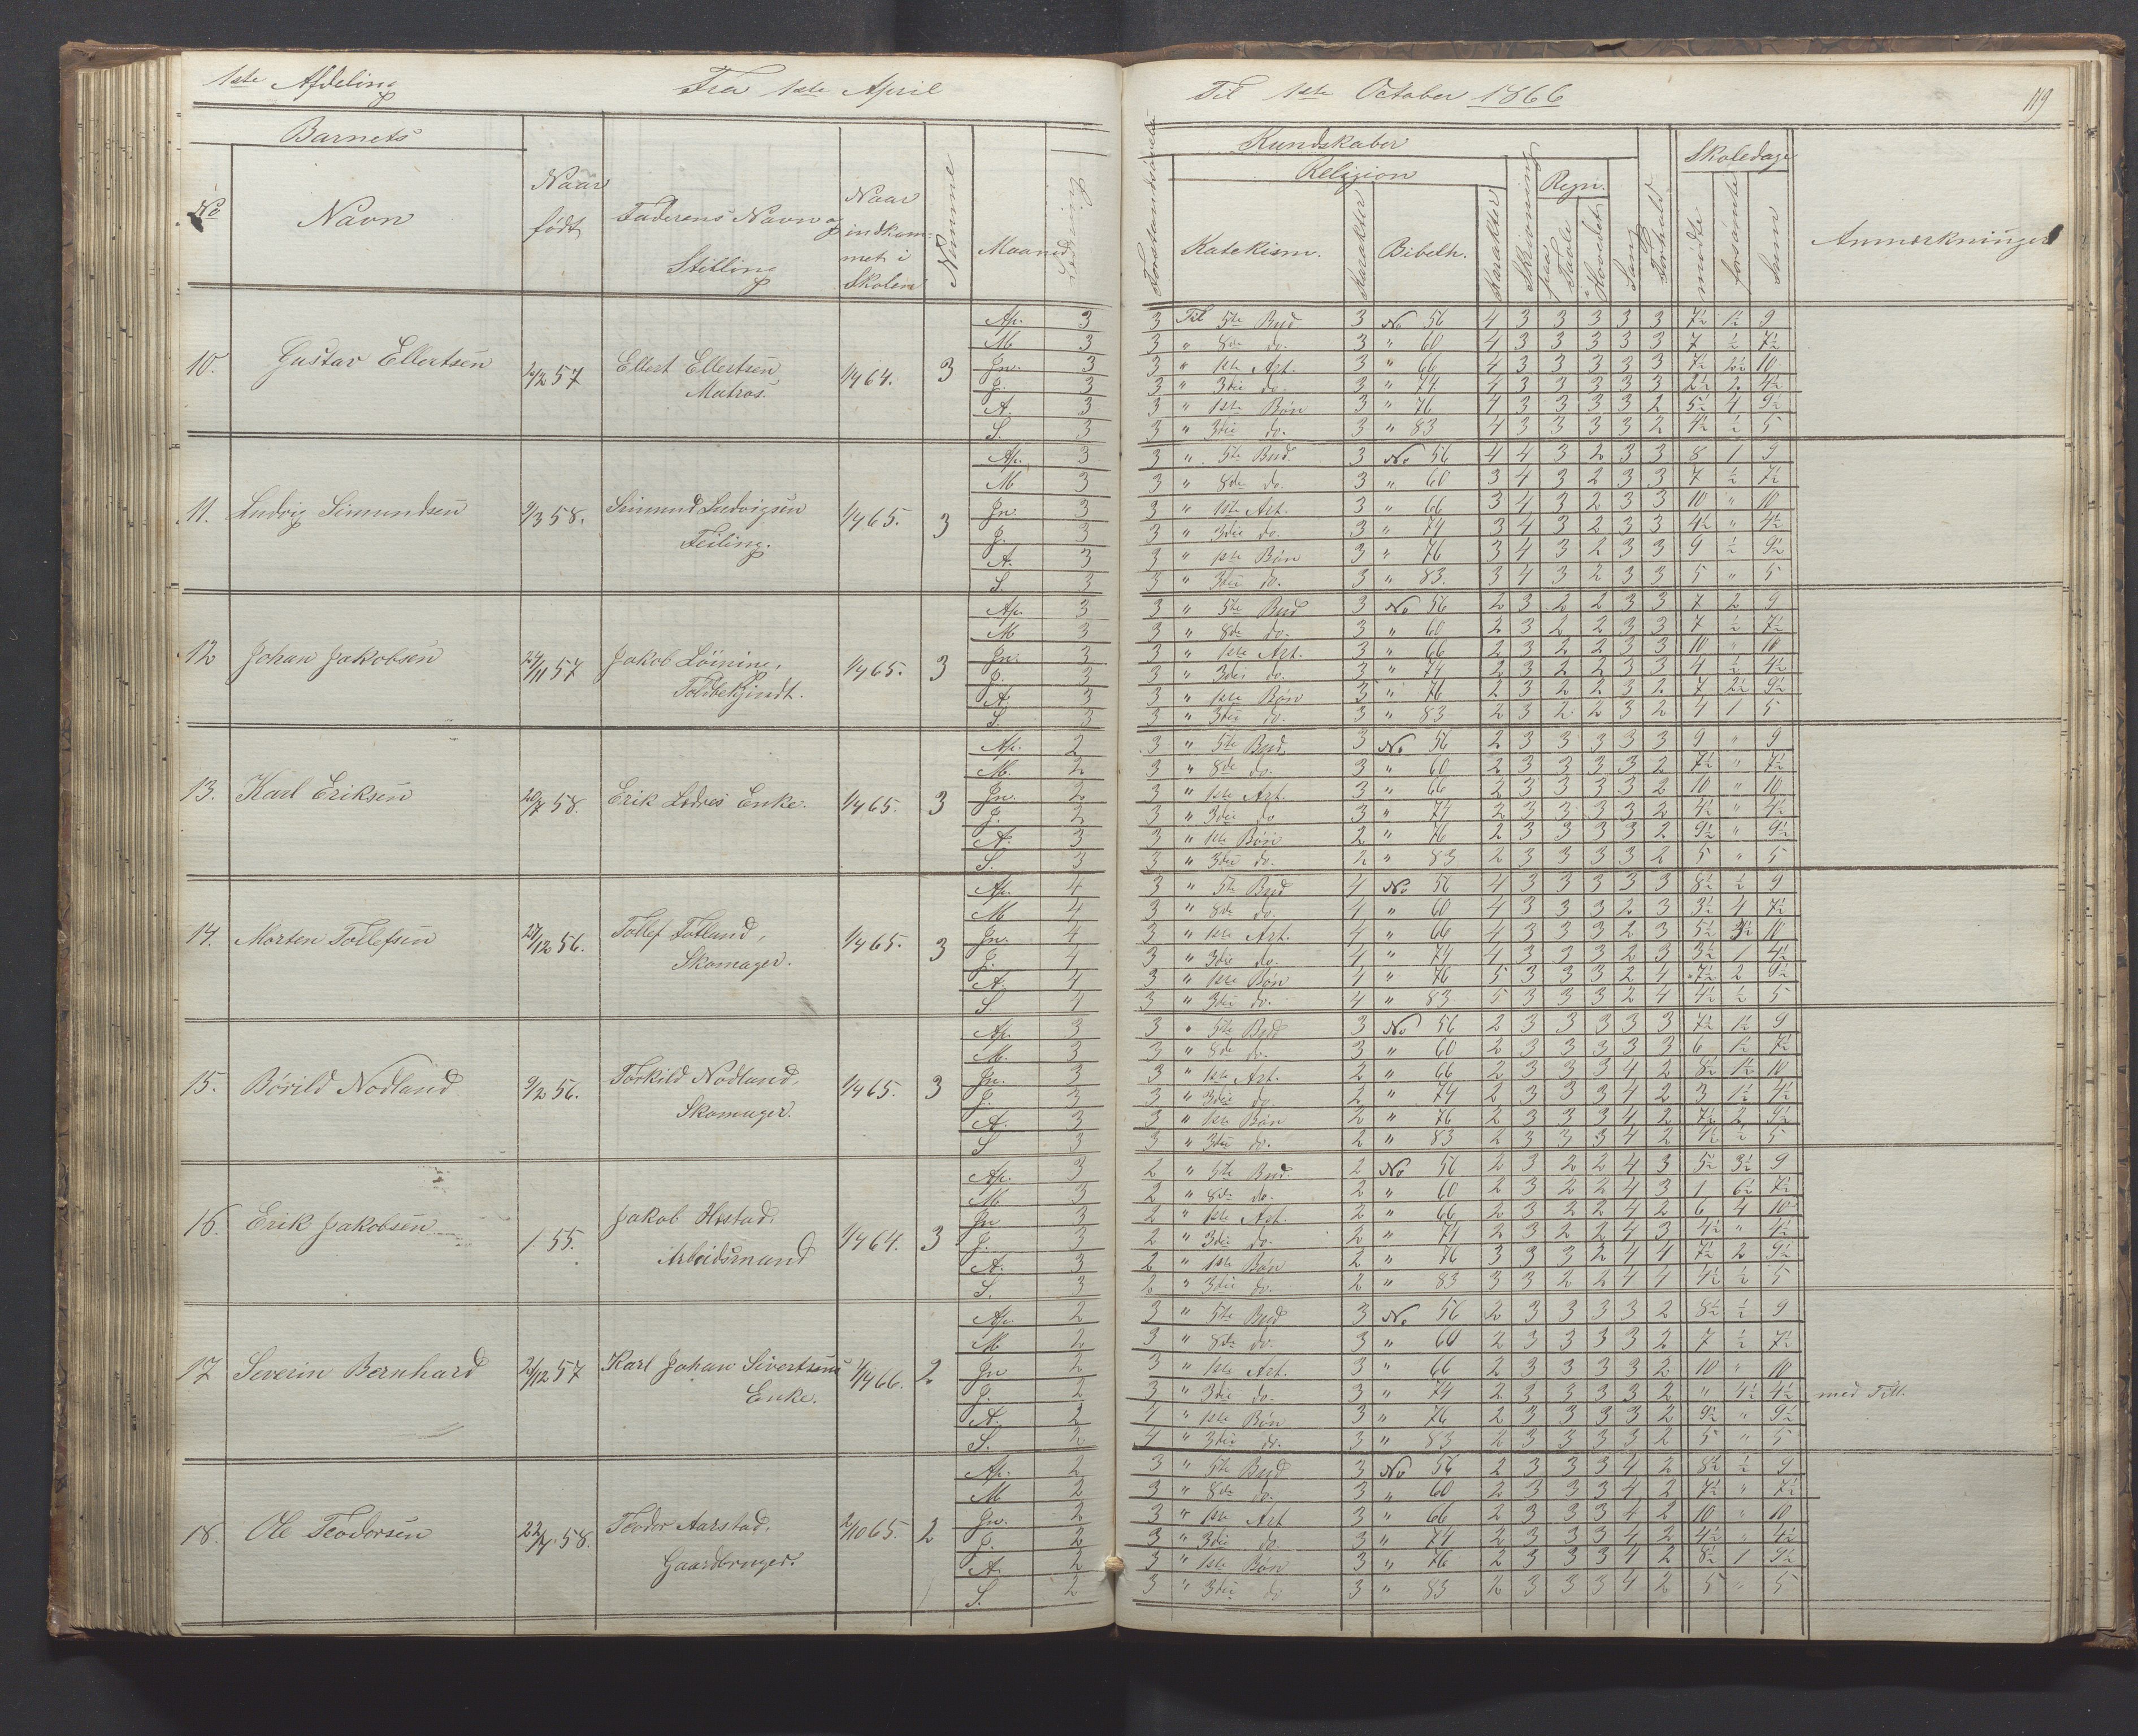 1ste Afdeling Fra 1ste April Til 1ste October 1866 119
Barnets Kundskaber Skoledage
Religion Regn.
No Navn Naar født Faderens Navn og Stilling Naar indkommet i Skolen Numme Maaned Læsning Katekism. Karakter Bibelh. Karakter Skrivning paa Tavle i Hovedet Sang Forhold mødte forsømte Sum Anmærkninger
10. Gustav Ellertsen 57 Ellert Ellertsen Matros. 1/4 64. 3
Ap. 3 3 Til 5te Bud 3 No 56 4 3 3 3 3 3 7½ 1½ 9
M 3 3 " 8de do. 3 " 60 4 3 3 3 3 3 7 ½ 7½
Jn. 3 3 " 1ste Art. 3 " 66 4 3 3 3 3 3 7½ 2½ 10
J. 3 3 " 3die do. 3 " 74 4 3 3 3 3 3 2½ 2 4½
A. 3 3 " 1ste Bøn 3 " 76 4 3 3 3 3 2 5½ 4 9½
S. 3 3 " 3die do. 3 " 83 4 3 3 3 3 2 4½ ½ 5
11. Ludvig Simundsen 9/3 58. Simund Ludvigsen Feiling. 1/4 65. 3
Ap. 3 3 " 5te Bud. 3 No 56 4 4 3 2 3 3 8 1 9
M 3 3 " 8de do. 3 " 60 3 4 3 2 3 3 7 ½ 7½
Jn. 3 3 " 1ste Art. 3 " 66 3 4 3 2 3 3 10 " 10
J. 3 3 " 3die do. 3 " 74 3 4 3 2 3 3 4½ " 4½
A. 3 3 " 1ste Bøn 3 " 76 3 4 3 2 3 3 9 ½ 9½
S. 3 3 " 3die do. 3 " 83. 3 4 3 2 3 3 5 " 5
12 Johan Jakobsen 24/11 57 Jakob Løining, Toldbetjendt. 1/4 65. 3
Ap. 3 3 " 5te Bud 3 No 56 2 3 2 2 3 3 7 2 9
M 3 3 " 8de do. 3 " 60 2 3 2 2 3 3 7 ½ 7½
Jn. 3 3 " 1ste Art. 3 " 66 2 3 2 2 3 3 10 " 10
J. 3 3 " 3die do. 3 " 74 2 3 2 2 3 3 4 ½ 4½
A. 3 3 " 1ste Bøn 3 " 76 2 3 2 2 3 2 7 2½ 9½
S. 3 3 " 3die do. 3 " 83 2 3 2 2 3 2 4 1 5
13. Karl Eriksen 20/7 58. Erik Lodnes Enke. 1/4 65. 3
Ap. 2 3 " 5te Bud 3 No 56 2 3 3 3 3 3 9 " 9
M. 2 3 " 8de do. 3 " 60 2 3 3 3 3 2 7½ " 7½
Jn. 2 3 " 1ste Art. 3 " 66 2 3 3 3 3 2 10 " 10
J. 2 3 " 3die do 3 " 74 2 3 3 3 3 2 4½ " 4½
A. 3 3 " 1ste Bøn 2 " 76 2 3 3 3 3 2 9½ " 9½
S. 3 3 " 3die do. 2 " 83 2 3 3 3 3 2 5 " 5
14. Morten Tollefsen 27/12 56. Tollef Totland, Skomager. 1/4 65. 3
Ap. 4 3 " 5te Bud 4 No 56 4 3 3 3 3 3 8½ ½ 9
M 4 3 " 8de do. 4 " 60 4 3 3 3 2 3 3½ 4 7½
Jn. 4 3 " 1ste Art. 4 " 66 4 3 3 3 2 3 5½ 3½ 10
J. 4 3 " 3die do. 4 " 74 4 3 3 3 2 3 3½ 1 4½
A. 4 3 " 1ste Bøn 4 " 76 5 3 3 3 2 4 7½ 2 9½
S. 4 3 " 3die do. 4 " 83 5 3 3 3 2 4 4½ ½ 5
15. Børild Nodland 9/2 56. Torkild Nodland, Skomager. 1/4 65. 3
Ap. 3 3 " 5te Bud 3 No 56 2 3 3 3 3 3 7½ 1½ 9
M. 3 3 " 8de do. 3 " 60 2 3 3 3 3 3 6 1½ 7½
Jn. 3 3 " 1ste Art. 2 " 66 2 3 3 3 4 2 8½ 1½ 10
J. 3 3 " 3die do. 2 " 74 2 3 3 3 4 2 3 1½ 4½
A. 3 3 " 1ste Bøn 2 " 76 2 3 3 3 4 2 7½ 2 9½
S 3 3 " 3die do. 2 " 83 2 3 3 3 4 2 4½ ½ 5
16. Erik Jakobsen / 55. Jakob Hestad. Arbeidsmand 1/4 64. 3
Ap. 3 2 " 5te Bud. 2 No 56 2 3 2 2 4 3 5½ 3½ 9
M. 3 2 " 8de do. 2 " 60 2 3 2 2 4 3 1 6½ 7½
Jn 3 2 " 1ste Art. 2 " 66 2 3 2 2 4 2 6 4 10
J. 3 2 " 3die do. 2 " 74 2 3 2 2 4 3 4½ " 4½
A. 3 2 " 1ste Bøn 2 " 76 3 3 3 2 4 4 7½ 2 9½
S. 3 2 " 3die do. 2 " 83 3 3 2 2 4 4 4½ ½ 5
17 Severin Bernhard 21/12 57 Karl Johan Sivertsens Enke. 1/4 66. 2
Ap. 2 3 " 5te Bud 3 No 56 2 3 3 3 3 2 8½ ½ 9
M 2 3 " 8de do. 3 " 60 2 3 3 3 3 2 7 ½ 7½
Jn 2 3 " 1ste Art. 3 " 66 2 3 3 3 3 2 10 " 10
J. 2 3 " 3die do. 3 " 74 2 3 3 3 3 2 " 4½ 4½ med Till.
A. 2 4 " 1ste Bøn 3 " 76 2 3 3 3 3 2 9½ " 9½
S. 2 4 " 3die do. 3 " 83 2 3 3 3 3 2 5 " 5
18. Ole Teodorsen 58. Teodor Aarstad, Gaardbruger. 2/10 65. 2
Ap. 2 3 " 5te Bud 3 No 56 2 3 3 3 4 2 8½ ½ 9
M 2 3 " 8de do. 3 " 60 2 3 3 3 4 2 7½ " 7½
Jn. 2 3 " 1ste Art 3 " 66 2 3 3 3 4 2 10 " 10
J. 2 3 " 3die do. 3 " 74 2 3 3 3 4 2 4½ " 4½
A. 2 3 " 1ste Bøn 3 " 76 2 3 3 3 4 2 8½ 1 9½
S. 2 3 " 3die do 3 " 83 2 3 3 3 4 2 5 " 5